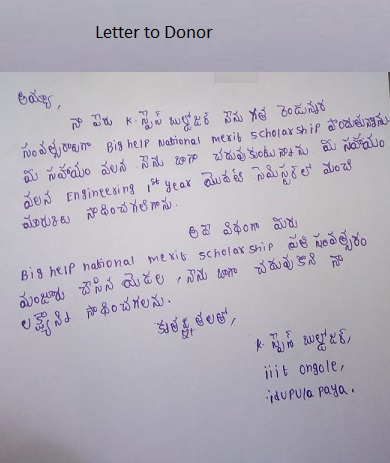 Letter to Donor
అయ్యా,
నా పేరు K. స్టైన్ బుల్డోజర్ నేను గత రెండున్నర
సంవత్సరాలుగా Big help National merit scholarship పొందుతున్నాను
మీ సహాయం వలన నేను బాగా చదువుకుంటున్నాను మీ సహాయం
వలన Engineering 1st year మొదటి సెమిస్టర్‌లో మంచి
మార్కులు సాధించగలిగాను.
అదే విధంగా మీరు
Big help national merit scholarship ప్రతి సంవత్సరం
మంజూరు చేసిన యెడల, నేను బాగా చదువుకొని నా
లక్ష్యాన్ని సాధించగలను.
కృతజ్ఞతలతో,
K. బుల్డోజర్,
iiit ongole,
idupulapaya.